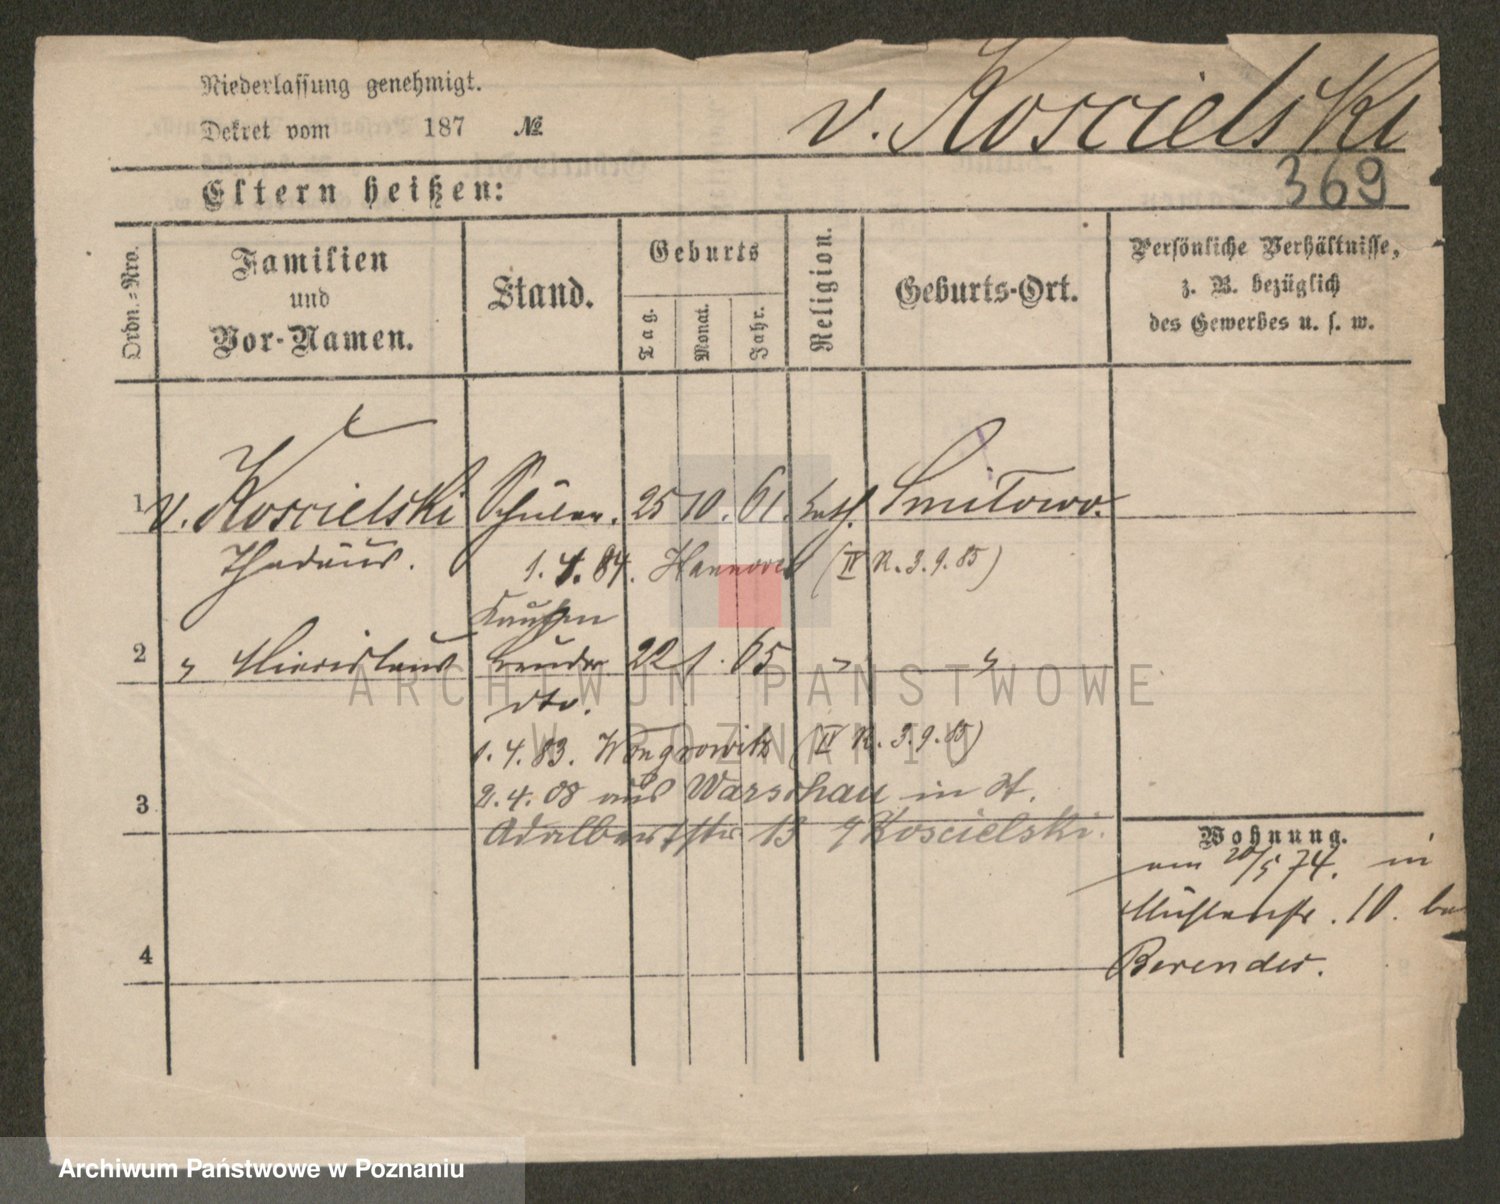 Niederlassung genehmigt.
v. Koscielski
Dekret vom 187 №
369
Eltern heißen:
Ordn.-Nro.
Familien und Vor-Namen.
Stand.
Geburts
Tag. Monat. Jahr.
Religion.
Geburts-Ort.
Persönliche Verhältnisse,
z. B. bezüglich
des Gewerbes u. s. w.
1 v. Koscielski Schüler. 25 10. 61. kath. Smilowo.
Thadäus. 1. 4. 84. Hannover (IV R. 3. 9. 85)
2 " Miecislaus Bruder 22 1. 65 " "
dto.
1. 4. 83. Wongrowitz (IV R. 3. 9. 85)
3 2. 4. 08 aus Warschau in St.
Adalbertstr 13 Koscielski.
Wohnung.
am 20/5 74. in
Mühlenstr. 10. bei
4 Berendes.
ARCHIWUM PAŃSTWOWE
W POZNANIU
Archiwum Państwowe w Poznaniu